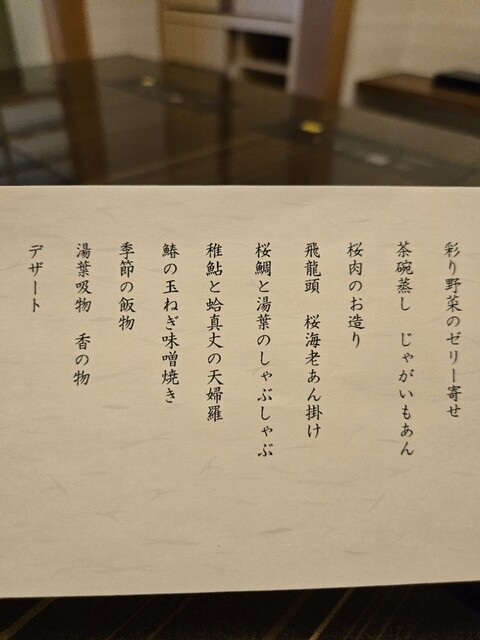 彩り野菜のゼリー寄せ
茶碗蒸し　じゃがいもあん
桜肉のお造り
飛龍頭　桜海老あん掛け
桜鯛と湯葉のしゃぶしゃぶ
稚鮎と蛤真丈の天婦羅
鰆の玉ねぎ味噌焼き
季節の飯物
湯葉吸物　香の物
デザート